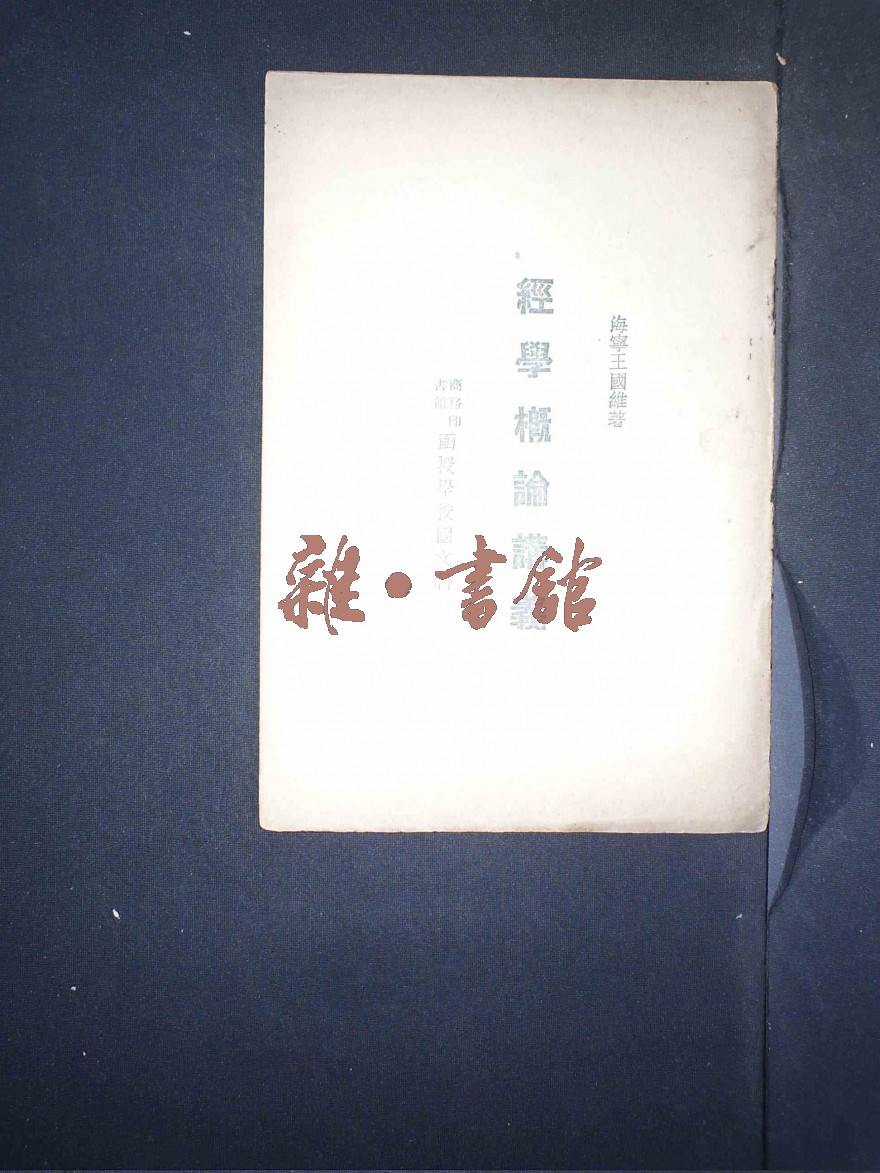 海寧王國維著
經學概論講義
商務印
書館
函授學校國文科
雜·書館